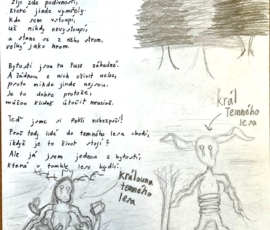 žijí zde podivnosti,
které jinde vymřely.
Kdo sem vstoupí,
už nikdy nevystoupí,
a stane se z něho strom,
velký jako hrom.
Bytosti jsou tu fuze záhadné.
A žádnou z nich oživit nelze,
proto nikde jinde nejsou.
Je to dobře protože,
můžou klidně útočit
Teď jsme si řekli nebezpečí!
Proč tedy lidé do temného lesa chodí,
když je to život stojí?
Ale já jsem jednou z bytostí,
která v tomhle lese bydlí.
král
Temného
lesa
královna
temného
lesa